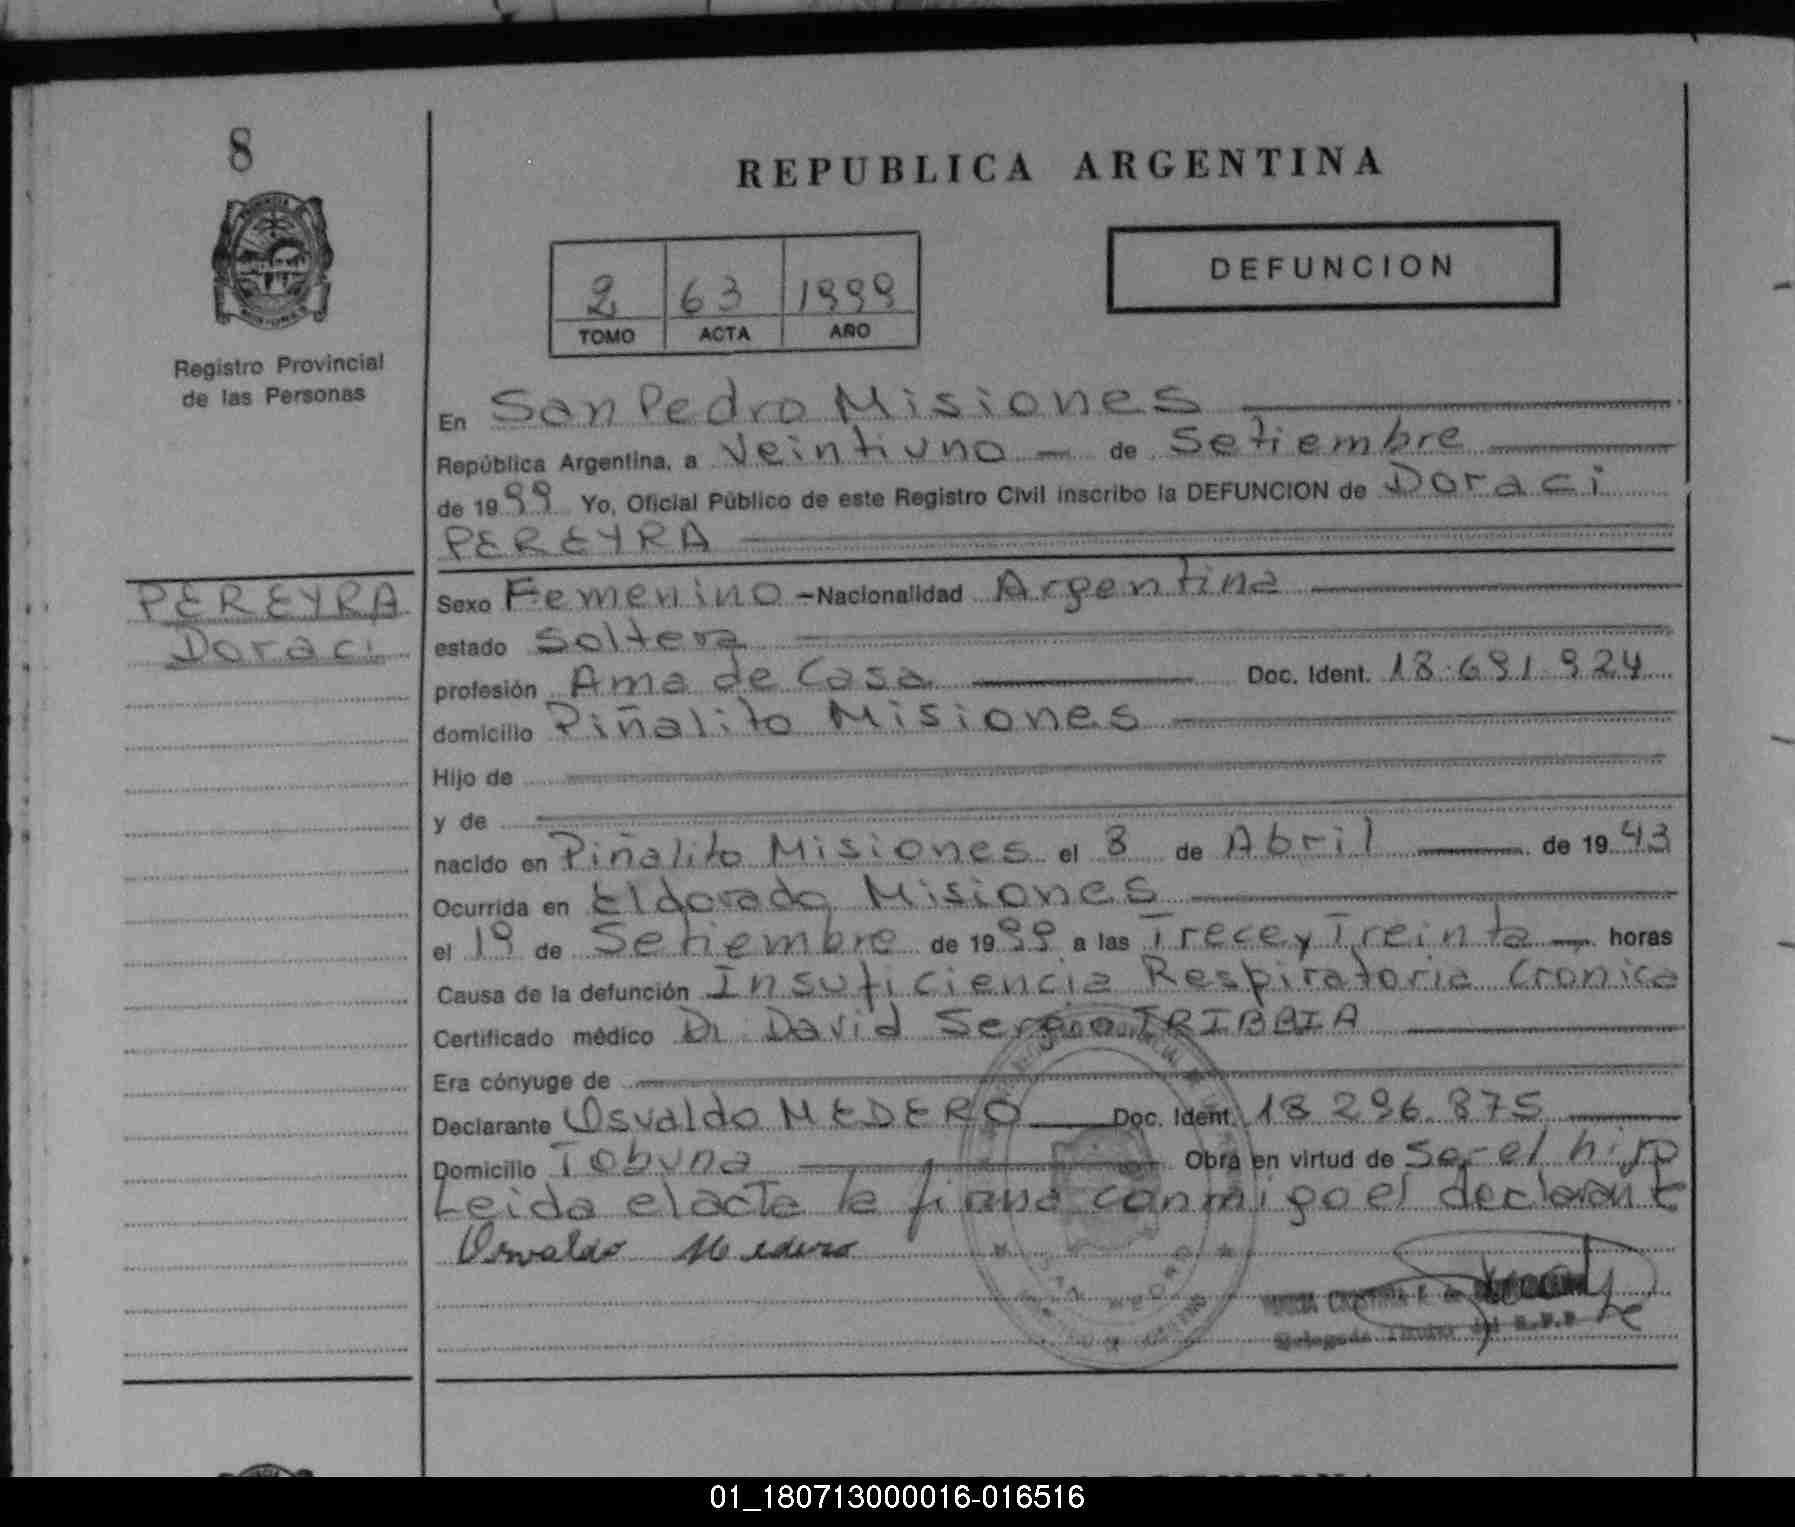 8
REPUBLICA ARGENTINA
DEFUNCION
2 63 1999
TOMO ACTA AÑO
Registro Provincial
de las Personas
En San Pedro Misiones
República Argentina, a Veintiuno de Setiembre
de 1999 Yo, Oficial Público de este Registro Civil inscribo la DEFUNCION de Doraci
PEREYRA
PEREYRA
Doraci
Sexo Femenino - Nacionalidad Argentina
estado Soltera
profesión Ama de Casa Doc. Ident. 18.691.924
domicilio Piñalito Misiones
Hijo de
y de
nacido en Piñalito Misiones el 8 de Abril de 1943
Ocurrida en Eldorado Misiones
el 19 de Setiembre de 1999 a las Trece y Treinta horas
Causa de la defunción Insuficiencia Respiratoria Cronica
Certificado médico Dr David Sergio
Era cónyuge de
Declarante Osvaldo MEDERO Doc. Ident. 18.296.875
Domicilio Tobuna Obra en virtud de ser el hijo
Leida el acta la firma conmigo el declarante
Osvaldo Medero
SAN PEDRO
01_180713000016-016516